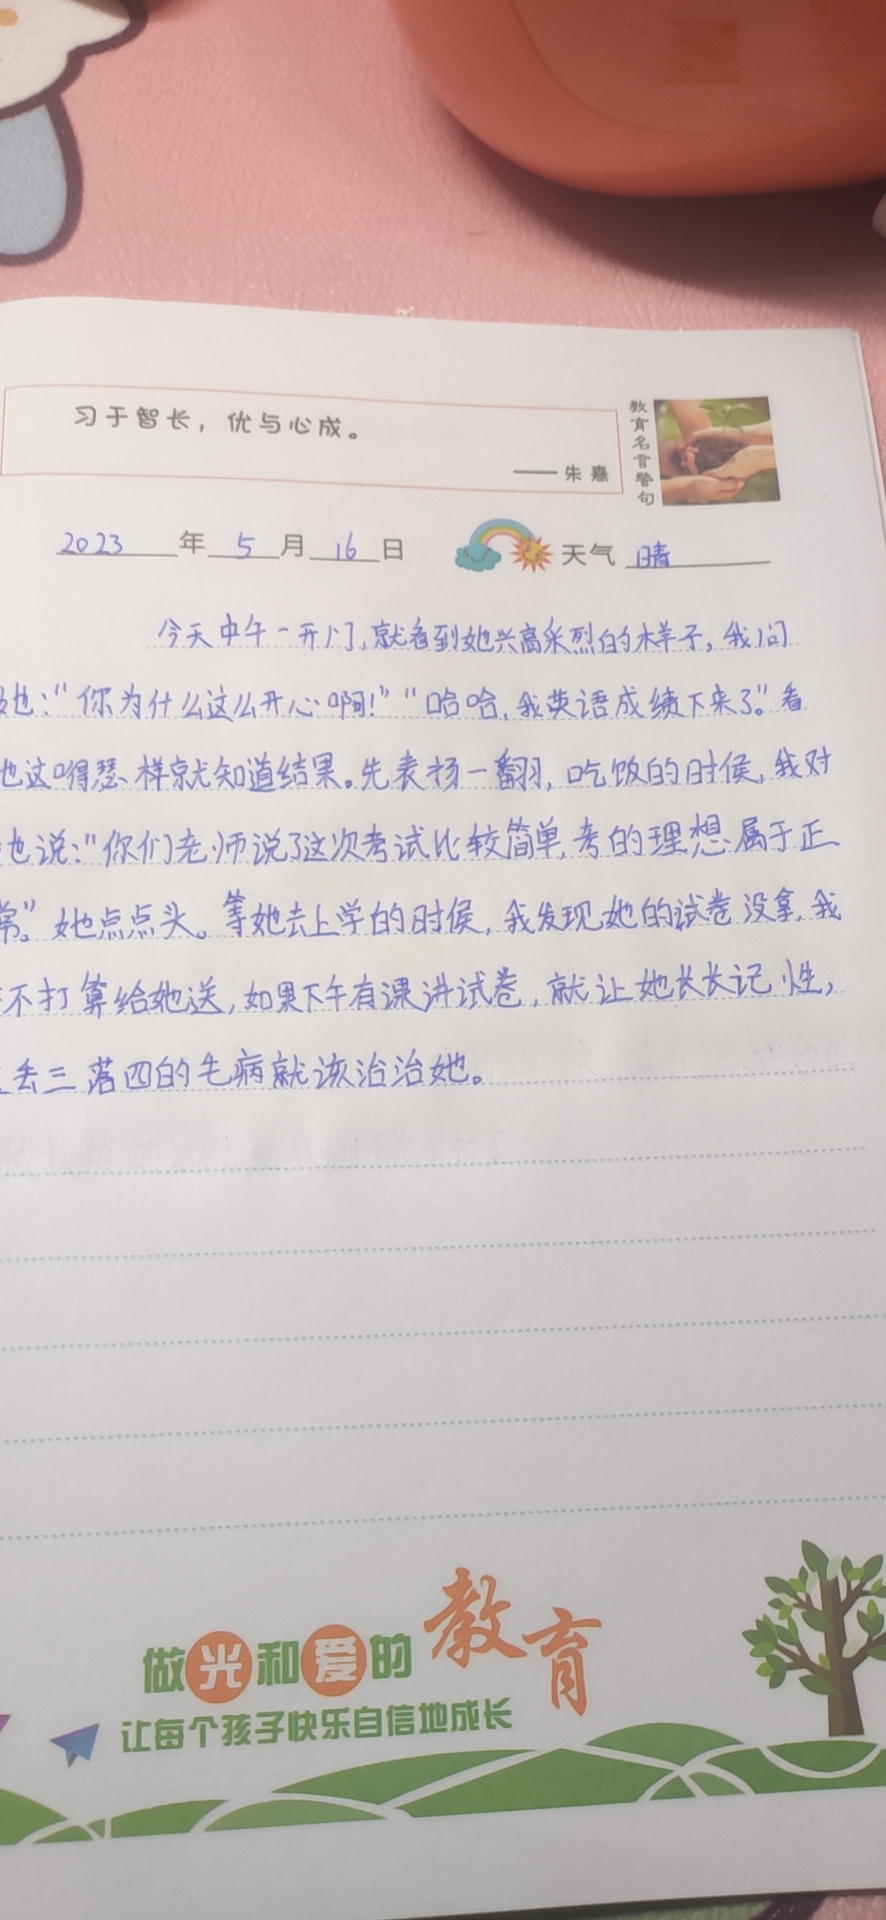 习于智长，优与心成。
——朱熹
教育名言警句
2023年5月16日 天气 晴
今天中午一开门，就看到她兴高采烈的样子，我问
她："你为什么这么开心啊！""哈哈，我英语成绩下来了。"看
她这嘚瑟样就知道结果。先表扬一翻，吃饭的时候，我对
她说："你们老师说了这次考试比较简单，考的理想属于正
常。"她点点头。等她去上学的时候，我发现她的试卷没拿，我
不打算给她送，如果下午有课讲试卷，就让她长长记性，
丢三落四的毛病就该治治她。
做光和爱的教育
让每个孩子快乐自信地成长